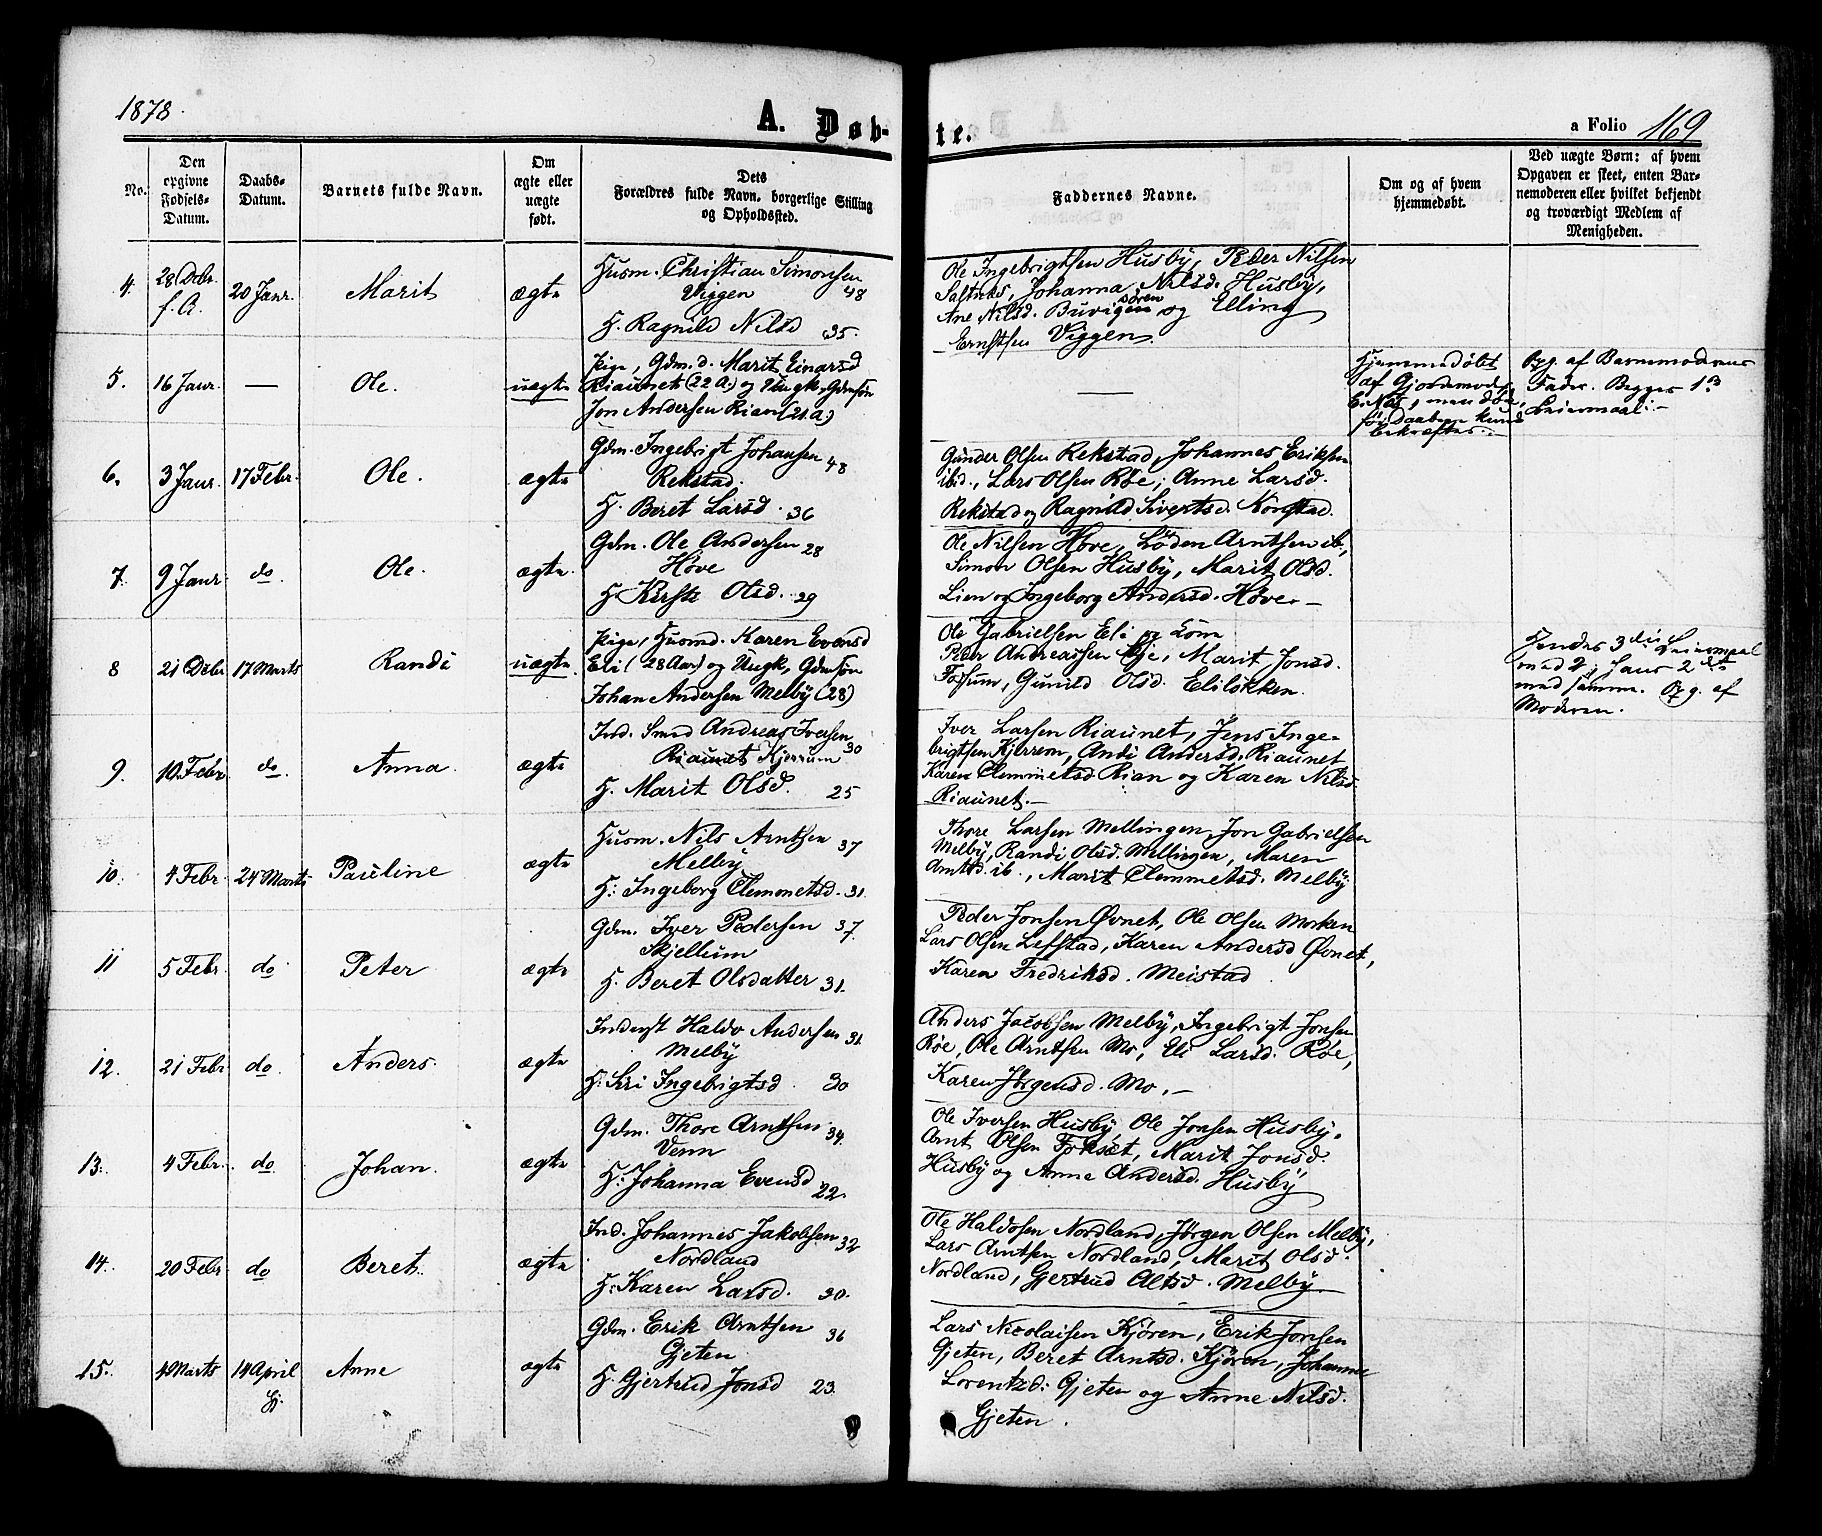 1878.
A. Døb-
te.
a Folio 169
No.
Den
opgivne
Fødsels-
Datum.
Daabs-
Datum.
Barnets fulde Navn.
Om
ægte eller
uægte
født.
Dets
Forældres fulde Navn, borgerlige Stilling
og Opholdssted.
Faddernes Navne.
Om og af hvem
hjemmedøbt.
Ved uægte Børn: af hvem
Opgaven er skeet, enten Bar-
nemoderen eller hvilket bekjendt
og troværdigt Medlem af
Menigheden.
4.
28 Dcbr.
f. A.
20 Janr.
Marit
ægte
Husm. Christian Simonsen
Viggen 48
H. Ragnild Nilsd 35.
Ole Ingebrigtsen Husby, Peder Nilsen
Johanna Nilsd. Husby,
Ane Nilsd. Buvigen og Elling
Ernstsen Viggen.
5.
16 Janr.
—
Ole.
uægte
Pige, Gdm.d. Marit Einarsd
Riaunet (22 A.) og Ungk. Gdmsøn
Jon Andersen Rian (21 A.)
—
Hjemmedøbt
af Gjordemoder
før Daaben kunde
bekræftes.
Opg. af Barnemoderens
Fader. Begges 1ste
Leiermaal.
6.
3 Janr.
17 Febr.
Ole.
ægte
Gdm. Ingebrigt Johansen 48
Rekstad.
H. Beret Larsd. 36
Gunder Olsen Rekstad, Johannes Eriksen
ibid., Lars Olsen Røe, Anne Larsd.
Rekstad og Ragnild Sivertsd. Korstad.
7.
9 Janr.
do.
Ole.
ægte.
Gdm. Ole Andersen 28
Hove
H. Kirste Olsd. 29
Ole Nilsen Hove, Loden Arntsen ib.,
Simon Olsen Husby, Marit Olsd.
Lien og Ingeborg Andersd. Hove.—
8
21 Dcbr
17 Marts
Randi
uægte.
Pige, Husmd. Karen Evensd
Eli (28 Aar) og Ungk, Gdmsøn
Johan Andersen Melby (28)
Ole Gabrielsen Eli og Kone
Peder Andreassen Øie, Marit Jonsd.
Forsum, Gunild Olsd. Eliløkken.
Hendes 3die Leiermaal
med 2, hans 2det
med samme. Opg. af
Moderen.
9.
10 Febr
do.
Anna.
ægte
Ind. Smed Andreas Iversen
Riaunet Kjerrum 30
H. Marit Olsd. 25
Iver Larsen Riaunet, Jens Inge-
brigtsen Kjerrem, Andi Andersd. Riaunet
Karen Clemmetsd Rian og Karen Nilsd.
Riaunet.—
10.
4 Febr.
24 Marts
Pauline
ægte
Husm. Nils Arntsen 37
Melby
H: Ingeborg Clemmetsd. 31.
Thore Larsen Mellingen, Jon Gabrielsen
Melby, Randi Olsd. Mellingen, Maren
Arntsd. ib., Marit Clemmetsd. Melby
11
5 Febr.
do
Peter
ægte
Gdm. Iver Pedersen 37.
Skjellum
H. Beret Olsdatter 31.
Peder Jonsen Øvnet, Ole Olsen Morken
Lars Olsen Lefstad, Karen Andersd Øvnet,
Karen Fredriksd. Meistad
12.
21 Febr
do.
Anders.
ægte
Inderst Haldo Andersen 31.
Melby
H: Siri Ingebrigtsd. 30
Anders Jacobsen Melby, Ingebrigt Jonsen
Røe, Ole Arntsen Mo, Eli Larsd. Røe,
Karen Jørgensd. Mo.—
13.
4 Febr.
do
Johan.
ægte
Gdm. Thore Arntsen 34.
Venn
H: Johanna Evensd 22.
Ole Iversen Husby, Ole Jonsen Husby,
Arnt Olsen Fokset, Marit Jonsd.
Husby og Anne Andersd. Husby
14.
20 Febr
do
Beret.
ægte
Ind. Johannes Jakobsen 32
Nordland
H: Karen Larsd. 30.
Ole Haldosen Nordland, Jørgen Olsen Melby,
Lars Arntsen Nordland, Marit Olsd.
Nordland, Gjertrud Altsd. Melby.
15.
4 Marts
14 April
Anne
ægte
Gdm. Erik Arntsen 36
Gjeten
H. Gjertrud Jonsd 23.
Lars Nicolaisen Kjøren, Erik Jonsen
Gjeten, Beret Arntsd. Kjøren, Johanne
Lorentzd: Gjeten og Anne Nilsd.
Gjeten.